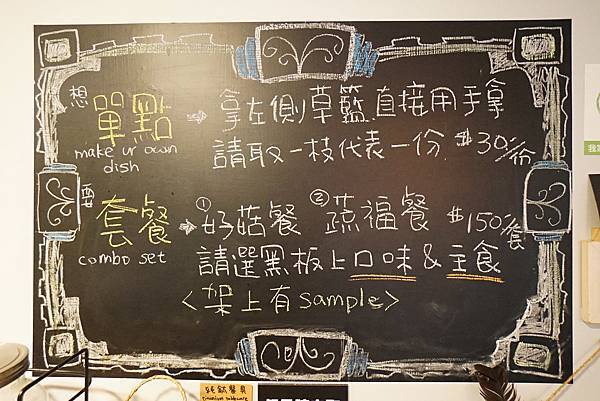 想 單點 → 拿左側草籃直接用手拿
make ur own dish
請取一枝代表一份 $30/份
要 套餐 → ①好菇餐 ②蔬福餐 $150/套
combo set
請選黑板上口味&主食
<架上有sample>
純鈦餐具
Titanium tableware